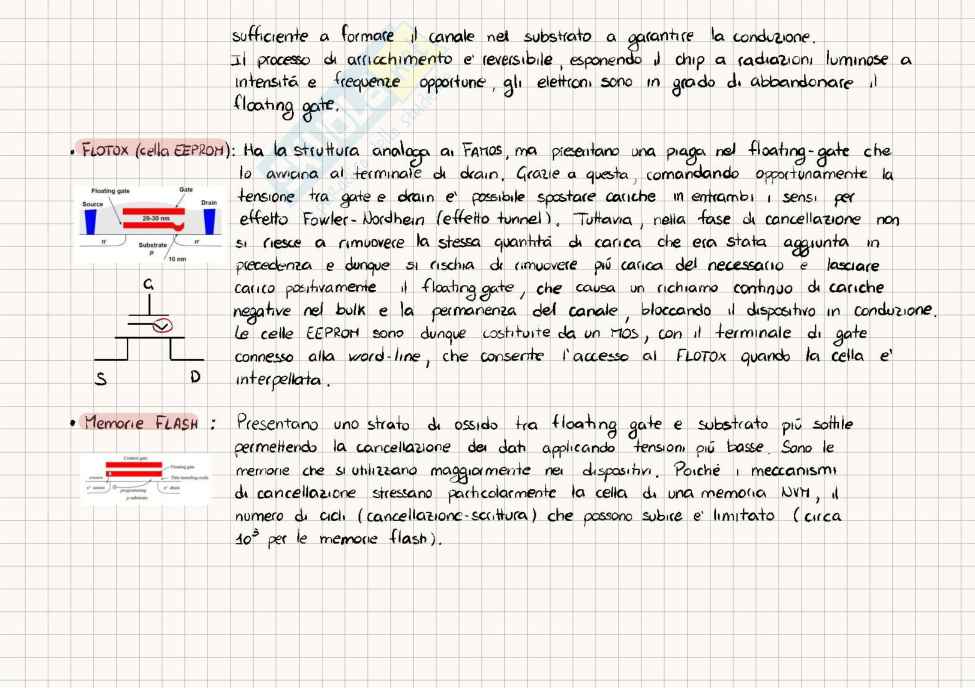 sufficiente a formare il canale nel substrato a garantire la conduzione.
Il processo di arricchimento e' reversibile, esponendo il chip a radiazioni luminose a
intensità e frequenze opportune, gli elettroni sono in grado di abbandonare il
floating gate.
• FLOTOX (cella EEPROM): Ha la struttura analoga ai FAMOS, ma presentano una piaga nel floating-gate che
lo avvicina al terminale di drain. Grazie a questa, comandando opportunamente la
tensione tra gate e drain e' possibile spostare cariche in entrambi i sensi per
effetto Fowler-Nordhein (effetto tunnel). Tuttavia, nella fase di cancellazione non
si riesce a rimuovere la stessa quantità di carica che era stata aggiunta in
precedenza e dunque si rischia di rimuovere più carica del necessario e lasciare
carico positivamente il floating gate, che causa un richiamo continuo di cariche
negative nel bulk e la permanenza del canale, bloccando il dispositivo in conduzione.
Le celle EEPROM sono dunque costituite da un MOS, con il terminale di gate
connesso alla word-line, che consente l'accesso al FLOTOX quando la cella e'
interpellata.
Floating gate
Gate
Source
Drain
20-30 nm
n+
Substrate
p
n+
10 nm
G
S
D
• Memorie FLASH : Presentano uno strato di ossido tra floating gate e substrato più sottile
permettendo la cancellazione dei dati applicando tensioni più basse. Sono le
memorie che si utilizzano maggiormente nei dispositivi. Poiché i meccanismi
di cancellazione stressano particolarmente la cella di una memoria NVM, il
numero di cicli (cancellazione-scrittura) che possono subire e' limitato (circa
10³ per le memorie flash).
Control gate
Floating gate
erasure
Thin tunneling oxide
n+ source
programming
n+ drain
p-substrate